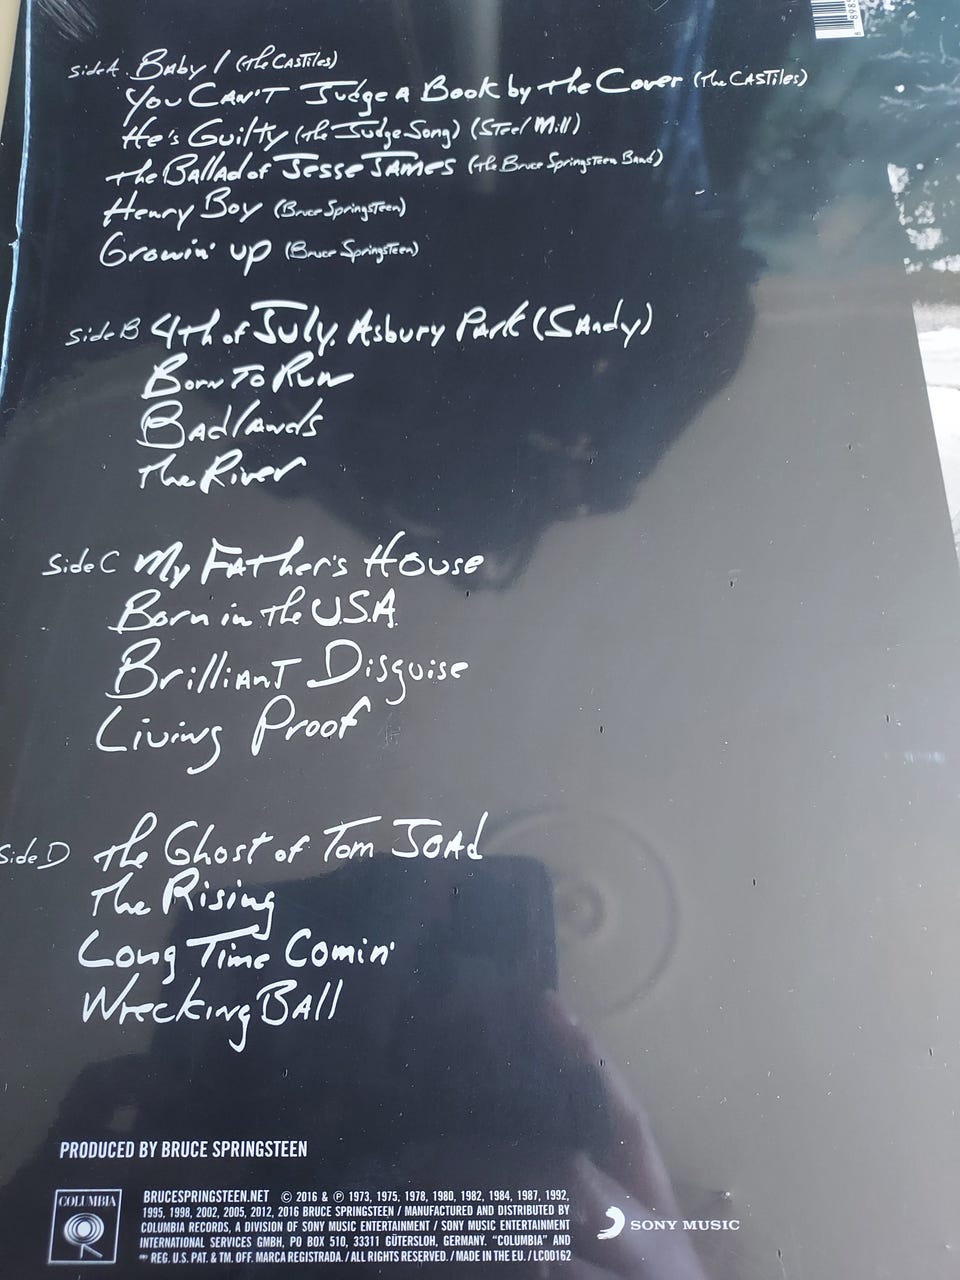 Side A Baby I (The Castiles)
You Can't Judge a Book by the Cover (The Castiles)
He's Guilty (The Judge Song) (Steel Mill)
The Ballad of Jesse James (The Bruce Springsteen Band)
Henry Boy (Bruce Springsteen)
Growin' up (Bruce Springsteen)
Side B 4th of July, Asbury Park (Sandy)
Born To Run
Badlands
The River
Side C My Father's House
Born in the U.S.A.
Brilliant Disguise
Living Proof
Side D The Ghost of Tom Joad
The Rising
Long Time Comin'
Wrecking Ball
PRODUCED BY BRUCE SPRINGSTEEN
COLUMBIA
BRUCESPRINGSTEEN.NET © 2016 & ℗ 1973, 1975, 1978, 1980, 1982, 1984, 1987, 1992,
1995, 1998, 2002, 2005, 2012, 2016 BRUCE SPRINGSTEEN / MANUFACTURED AND DISTRIBUTED BY
COLUMBIA RECORDS, A DIVISION OF SONY MUSIC ENTERTAINMENT / SONY MUSIC ENTERTAINMENT
INTERNATIONAL SERVICES GMBH, PO BOX 510, 33311 GÜTERSLOH, GERMANY. "COLUMBIA" AND
REG. U.S. PAT. & TM. OFF. MARCA REGISTRADA. / ALL RIGHTS RESERVED. / MADE IN THE EU. / LC00162
SONY MUSIC